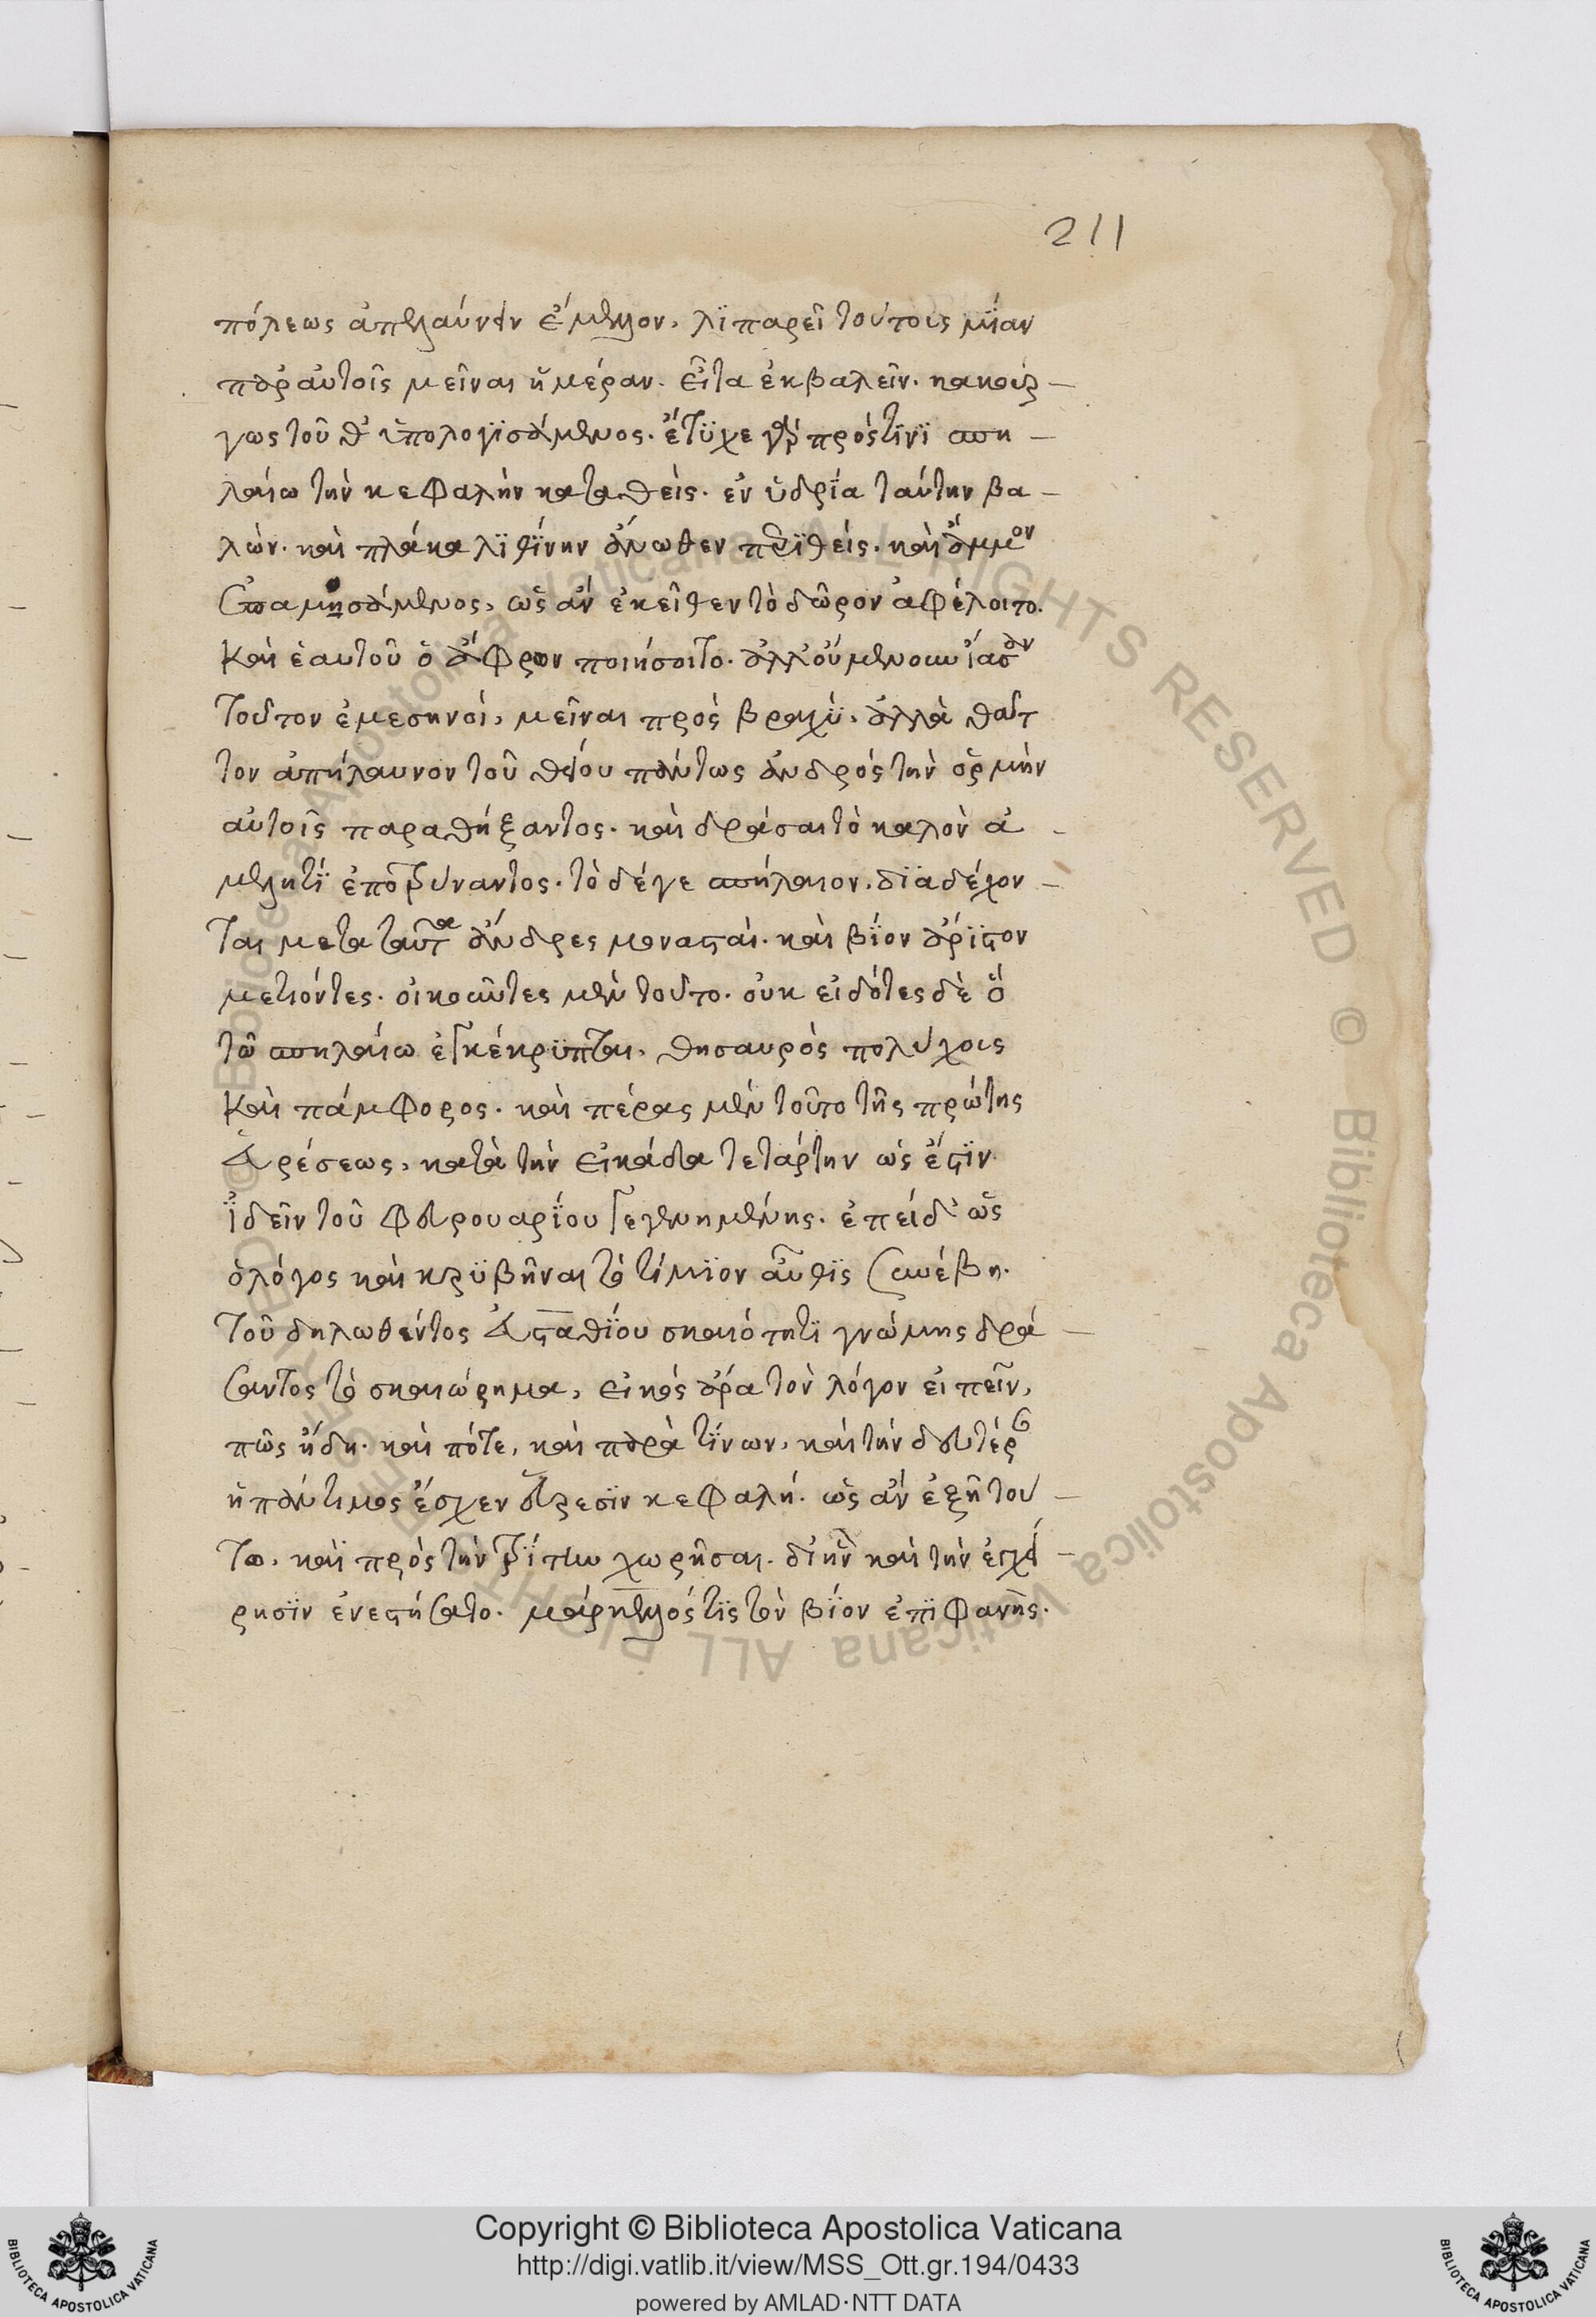 211
πόλεως ἀπελαύνειν ἔμελλον, λϊπαρεῖ τούτοις μΐαν
παρ' αὐτοῖς μεῖναι ἡμέραν. εἶτα ἐκβαλεῖν. κακούρ-
γως τοῦθ' ὑπολογϊσάμενος. ἔτϋχε γὰρ πρός τϊνϊ σπη-
λαίω τὴν κεφαλὴν καταθείς. ἐν ὑδρΐα ταύτην βα-
λών. καὶ πλάκα λϊθΐνην ἄνωθεν περϊθείς. καὶ ἄμμον
ἐπαμησάμενος, ὡς ἂν ἐκεῖθεν τὸ δῶρον ἀφέλοιτο.
καὶ ἑαυτοῦ ὁ ἄφρων ποιήσοιτο. ἀλλ' οὐ μενοῦν εἴασαν
τοῦτον ἐμεσηνοί, μεῖναι πρὸς βραχὺ, ἀλλὰ θᾶτ
τον ἀπήλαυνον τοῦ θείου πάντως ἀνδρός τὴν ὁρμὴν
αὐτοῖς παραθήξαντος. καὶ δρᾶσαι τὸ καλὸν ἀ-
μελητΐ ἐποτρύναντος. τὸ δέ γε σπήλαιον, δϊαδέχον-
ται μετὰ ταῦτα ἄνδρες μονασταὶ. καὶ βΐον ἄρϊστον
μετιόντες. οἰκοῦντες μὲν τοῦτο. οὐκ εἰδότες δὲ ὅ
τῶ σπηλαίω ἐγκέκρϋπται, θησαυρὸς πολύχους
καὶ πάμφορος. καὶ πέρας μὲν τοῦτο τῆς πρώτης
εὑρέσεως, κατὰ τὴν εἰκάδα τετάρτην ὡς ἔστϊν
ἰδεῖν τοῦ φευρουαρΐου γεγενημένης. ἐπεὶ δ' ὡς
ὁ λόγος καὶ κρϋβῆναι τὸ τίμϊον αὖθϊς συνέβη.
τοῦ δηλωθέντος εὐσταθΐου σκαιότητϊ γνώμης δρά-
σαντος τὸ σκαιώρημα, εἰκὸς ἄρα τὸν λόγον εἰπεῖν,
πῶς ἤδη. καὶ πότε, καὶ παρὰ τΐνων, καὶ τὴν δευτέραν
ἡ πάντιμος ἔσχεν εὕρεσϊν κεφαλή. ὡς ἂν ἐξῆ του-
τω, καὶ πρὸς τὴν τρΐτην χωρῆσαι. δι' ἣν καὶ τὴν ἐγχεί-
ρησϊν ἐνεστήσατο. μάρκελλός τϊς τὸν βΐον ἐπϊφανὴς.
Copyright © Biblioteca Apostolica Vaticana
http://digi.vatlib.it/view/MSS_Ott.gr.194/0433
powered by AMLAD·NTT DATA